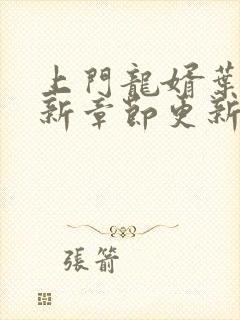 上門龍婿葉
新章節更新
張箭